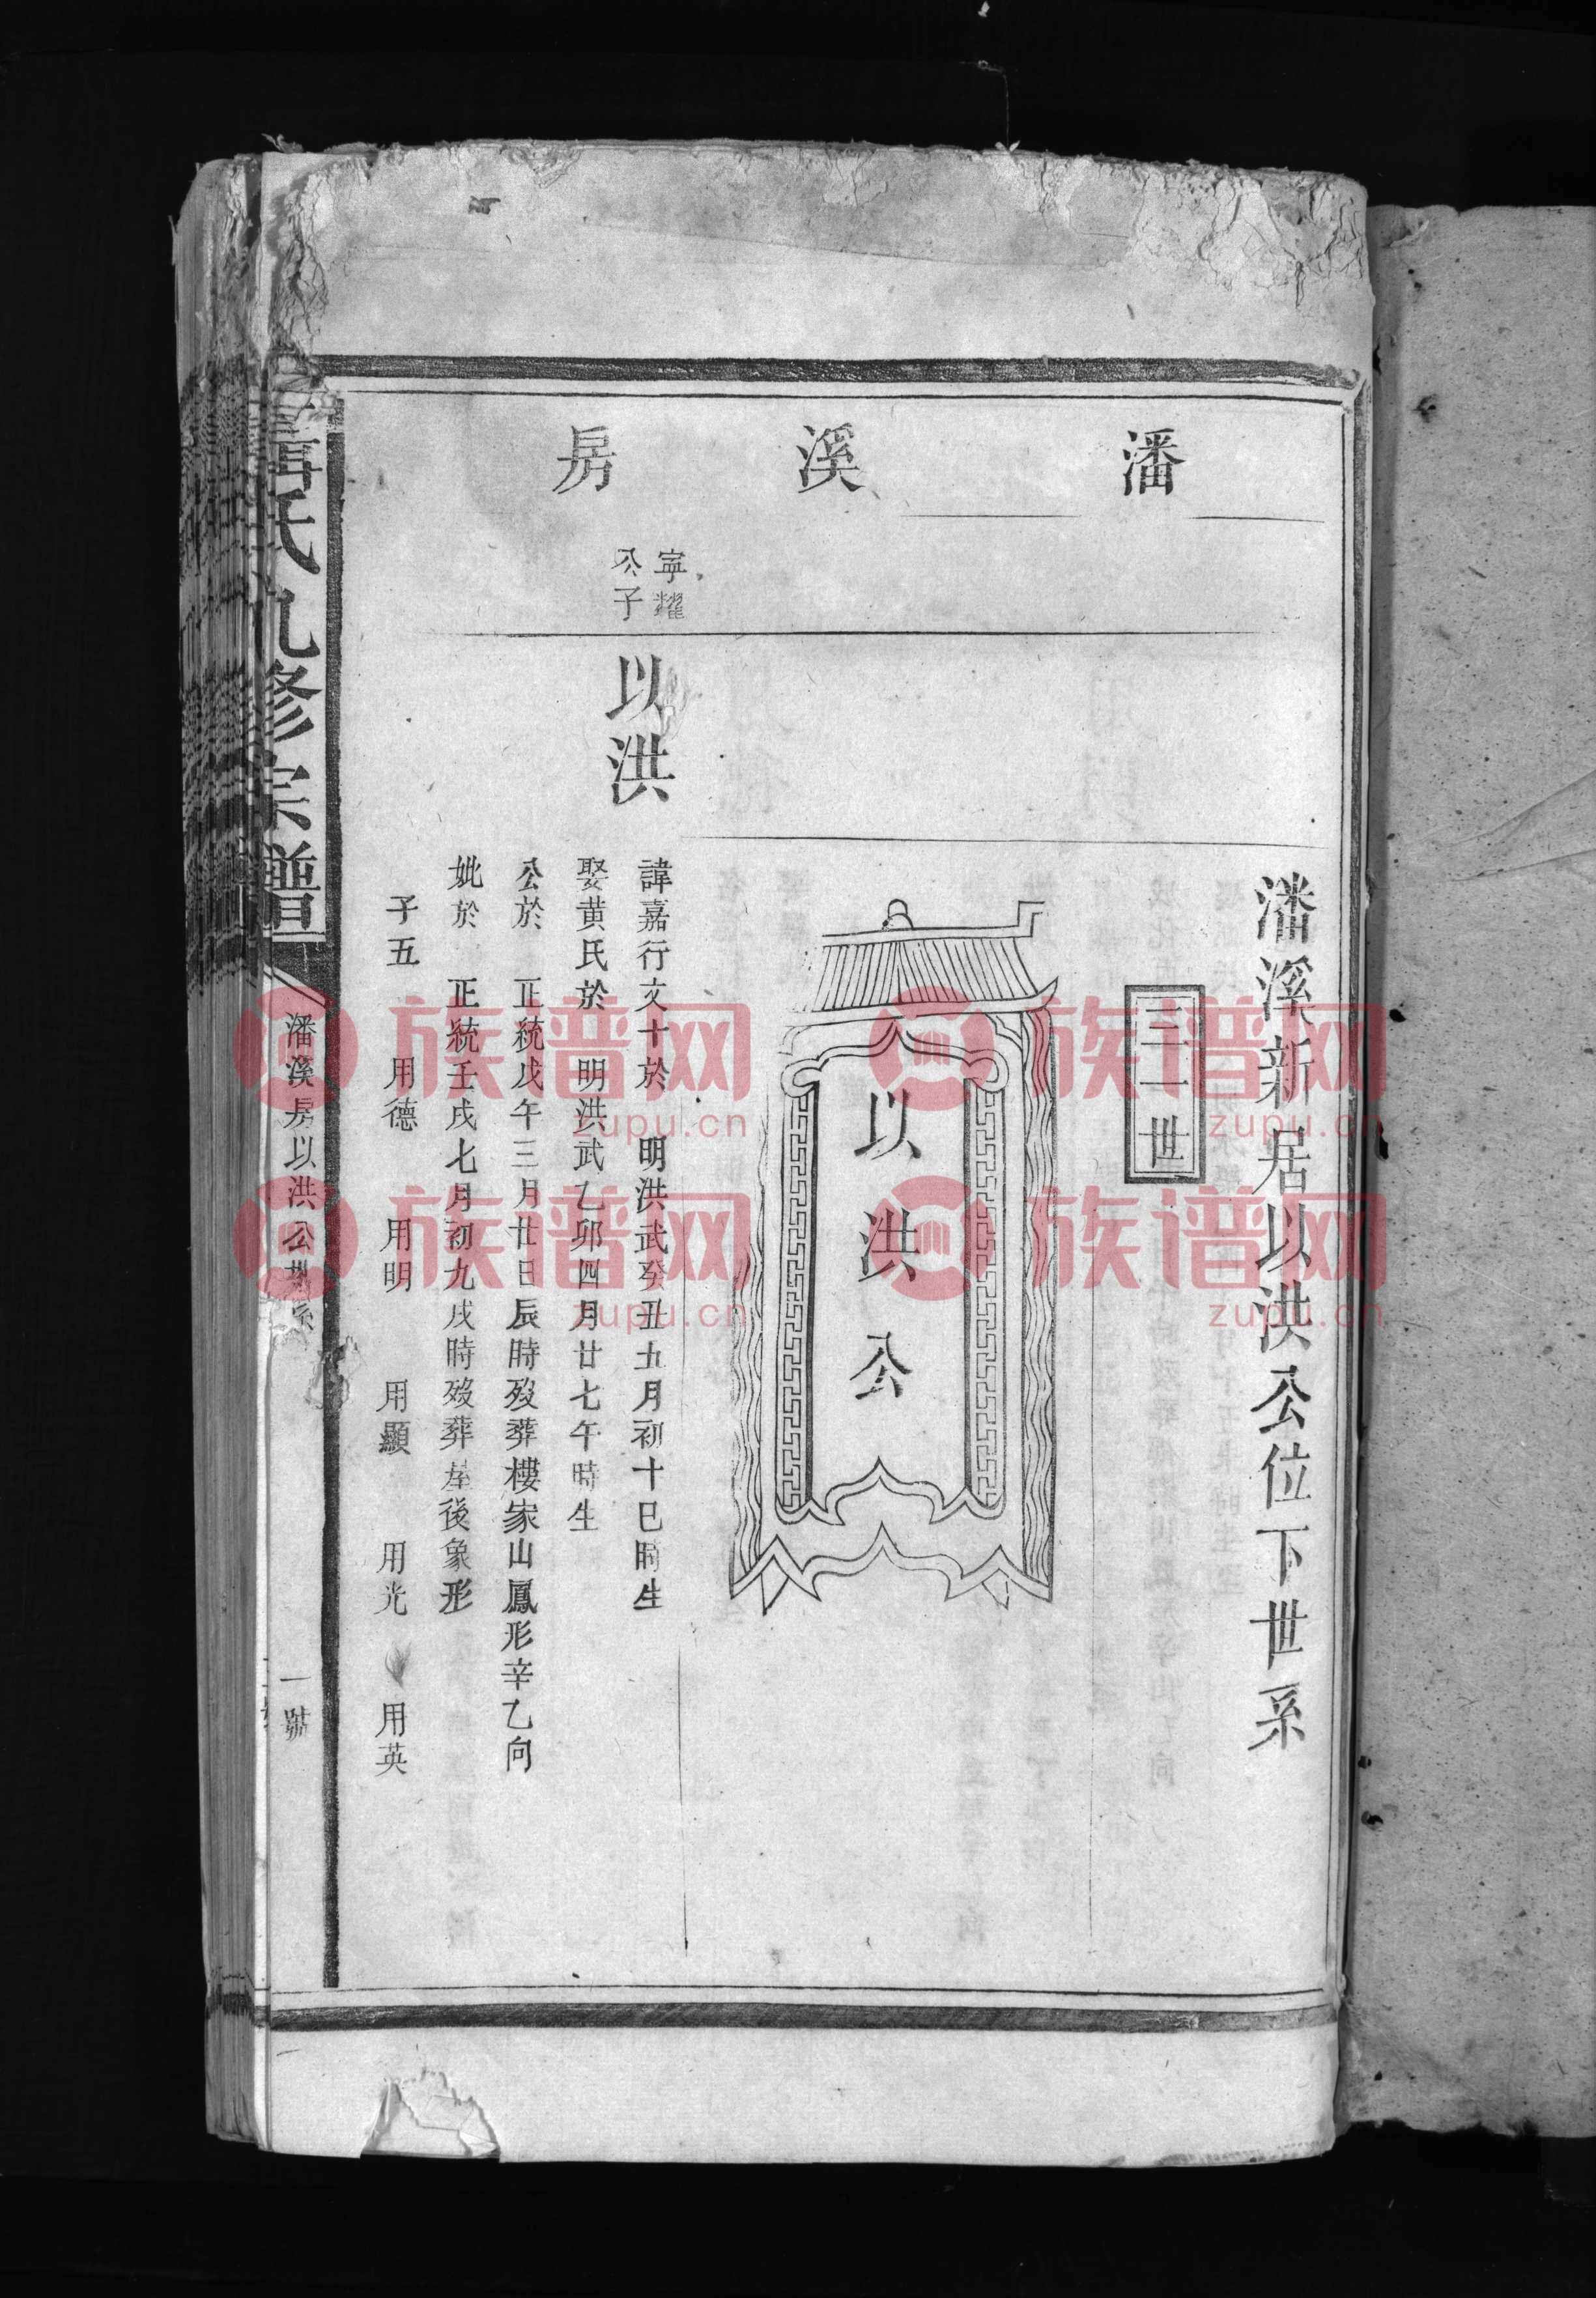 潘溪房
潘溪新居以洪公位下世系
三一世
以洪公
寧耀
公子
以洪
諱嘉行文十於 明洪武癸丑五月初十巳時生
娶黄氏於 明洪武乙卯四月廿七午時生
公於 正統戊午三月廿日辰時歿葬樓家山鳳形辛乙向
妣於 正統壬戌七月初九戌時歿葬屋後象形
子五 用德 用明 用顯 用光 用英
氏九修宗譜
潘溪房以洪公
一號
族谱网
zupu.cn
族谱网
zupu.cn
族谱网
zupu.cn
族谱网
zupu.cn